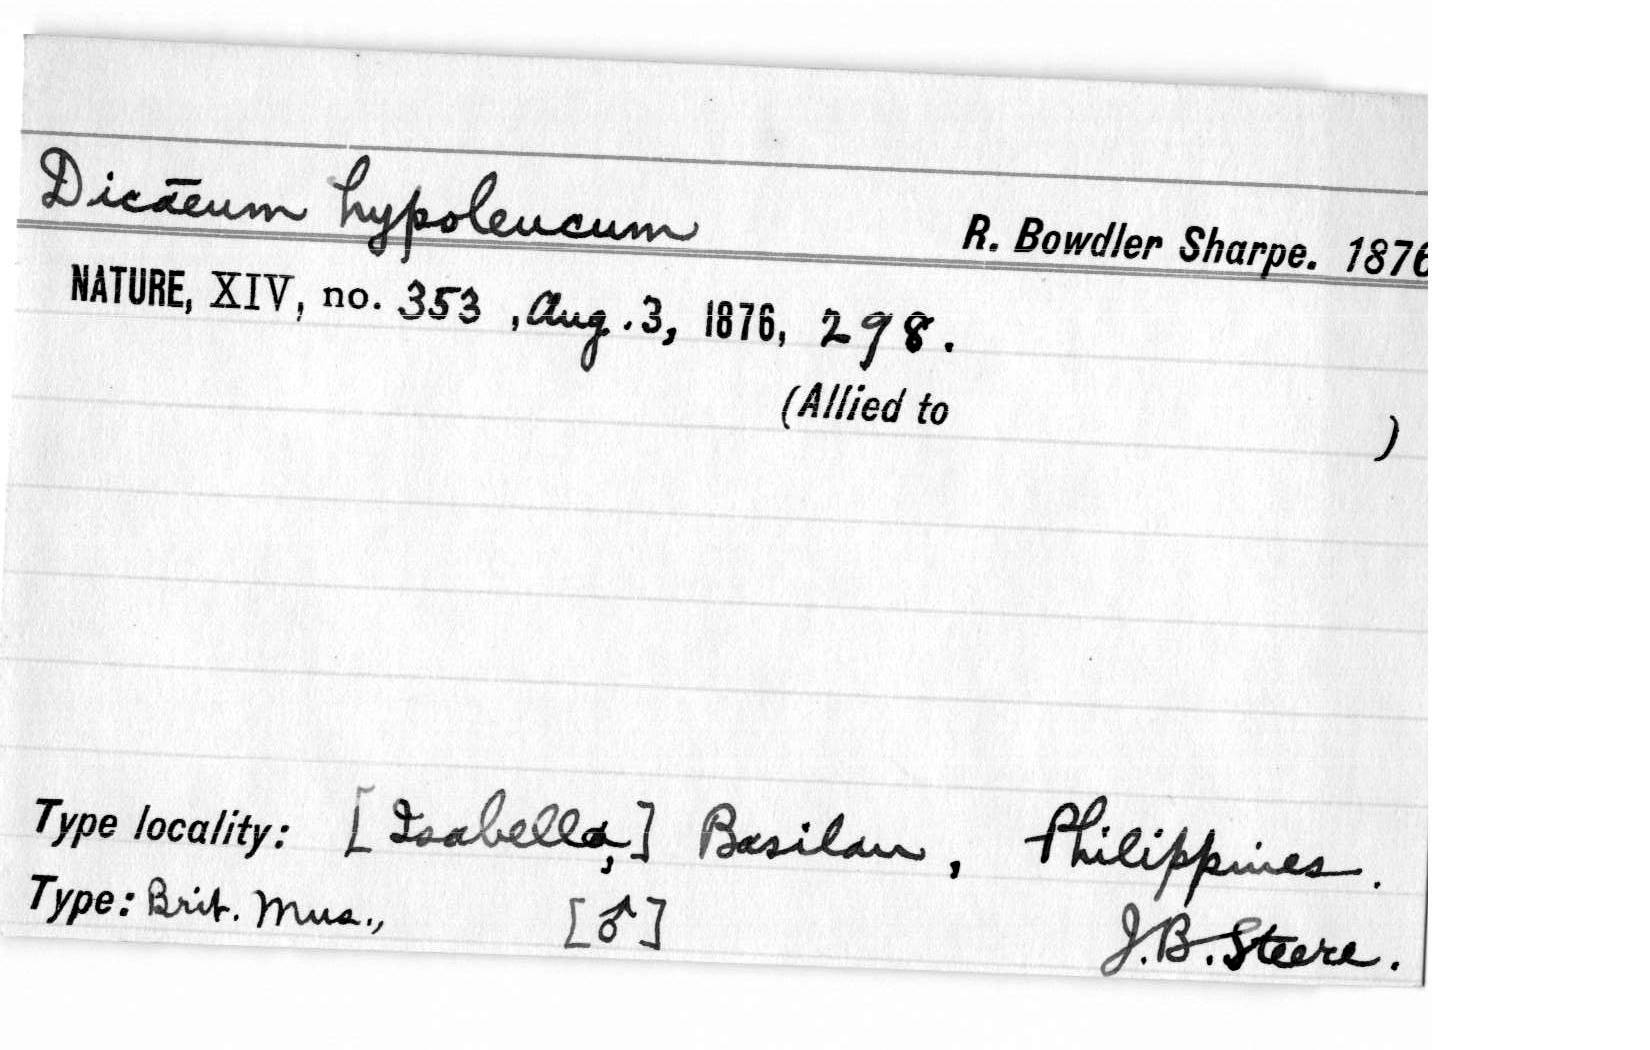 Dicaeum hypoleucum
R. Bowdler Sharpe. 1876
NATURE, XIV, no. 353, Aug. 3, 1876, 298.
(Allied to )
Type locality: [Isabella,] Basilan, Philippines.
Type: Brit. Mus., [♂] J.B. Steere.